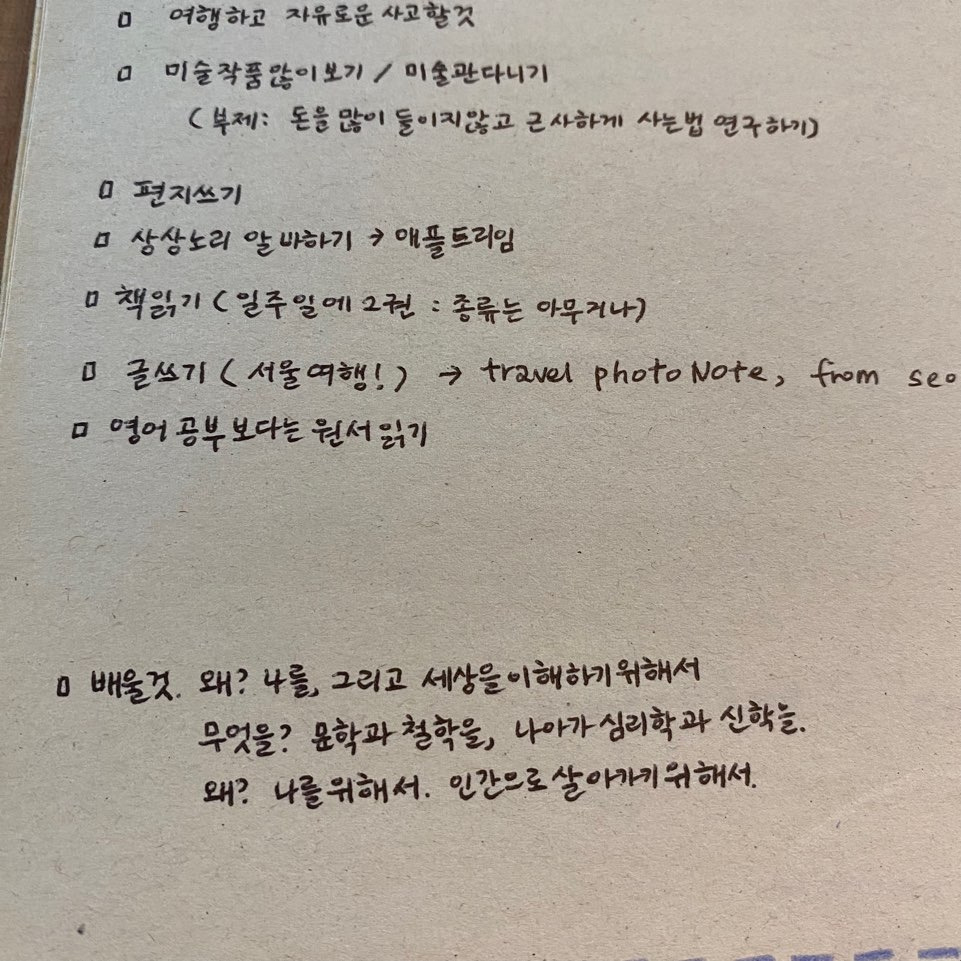 □ 여행하고 자유로운 사고할것
□ 미술작품많이보기 / 미술관다니기
(부제: 돈을 많이 들이지않고 근사하게 사는법 연구하기)
□ 편지쓰기
□ 상상노리 알바하기 → 애플트리임
□ 책읽기 (일주일에 2권 : 종류는 아무거나)
□ 글쓰기 (서울여행!) → travel photo Note, from seo
□ 영어공부보다는 원서읽기
□ 배울것. 왜? 나를, 그리고 세상을이해하기위해서
무엇을? 문학과 철학을, 나아가 심리학과 신학을.
왜? 나를위해서. 인간으로살아가기위해서.